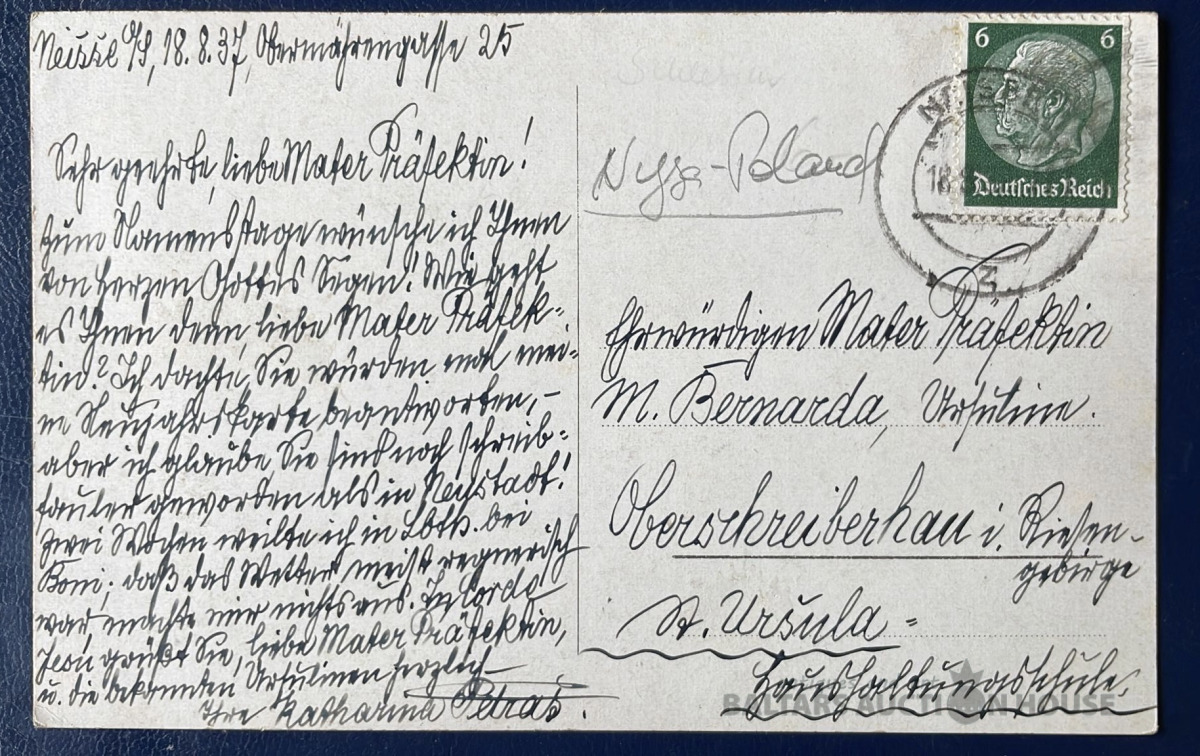 Neisse O/S, 18.8.37, Obermährengasse 25
Sehr geehrte, liebe Mater Präfektin!
Zum Namenstage wünsche ich Ihnen
von Herzen Gottes Segen! Wie geht
es Ihnen denn, liebe Mater Präfek-
tin? Ich dachte, Sie würden mal mei-
ne Neujahrskarte beantworten, –
aber ich glaube, Sie sind noch schreib-
fauler geworden als in Neustadt!
Zwei Wochen weilte ich in Lbth. bei
Koni; daß das Wetter meist regnerisch
war, machte mir nichts aus. In Corde
Jesu grüßt Sie, liebe Mater Präfektin,
u. die bekannten Ursulinen herzlich
Ihre Katharina Petras.
Nysa-Poland
6 6
Deutsches Reich
NEISSE
18.
3
Ehrwürdigen Mater Präfektin
M. Bernarda, Ursuline.
Oberschreiberhau i. Riesen-
gebirge
St. Ursula-
Haushaltungsschule.
BALTARS AUCTION HOUSE